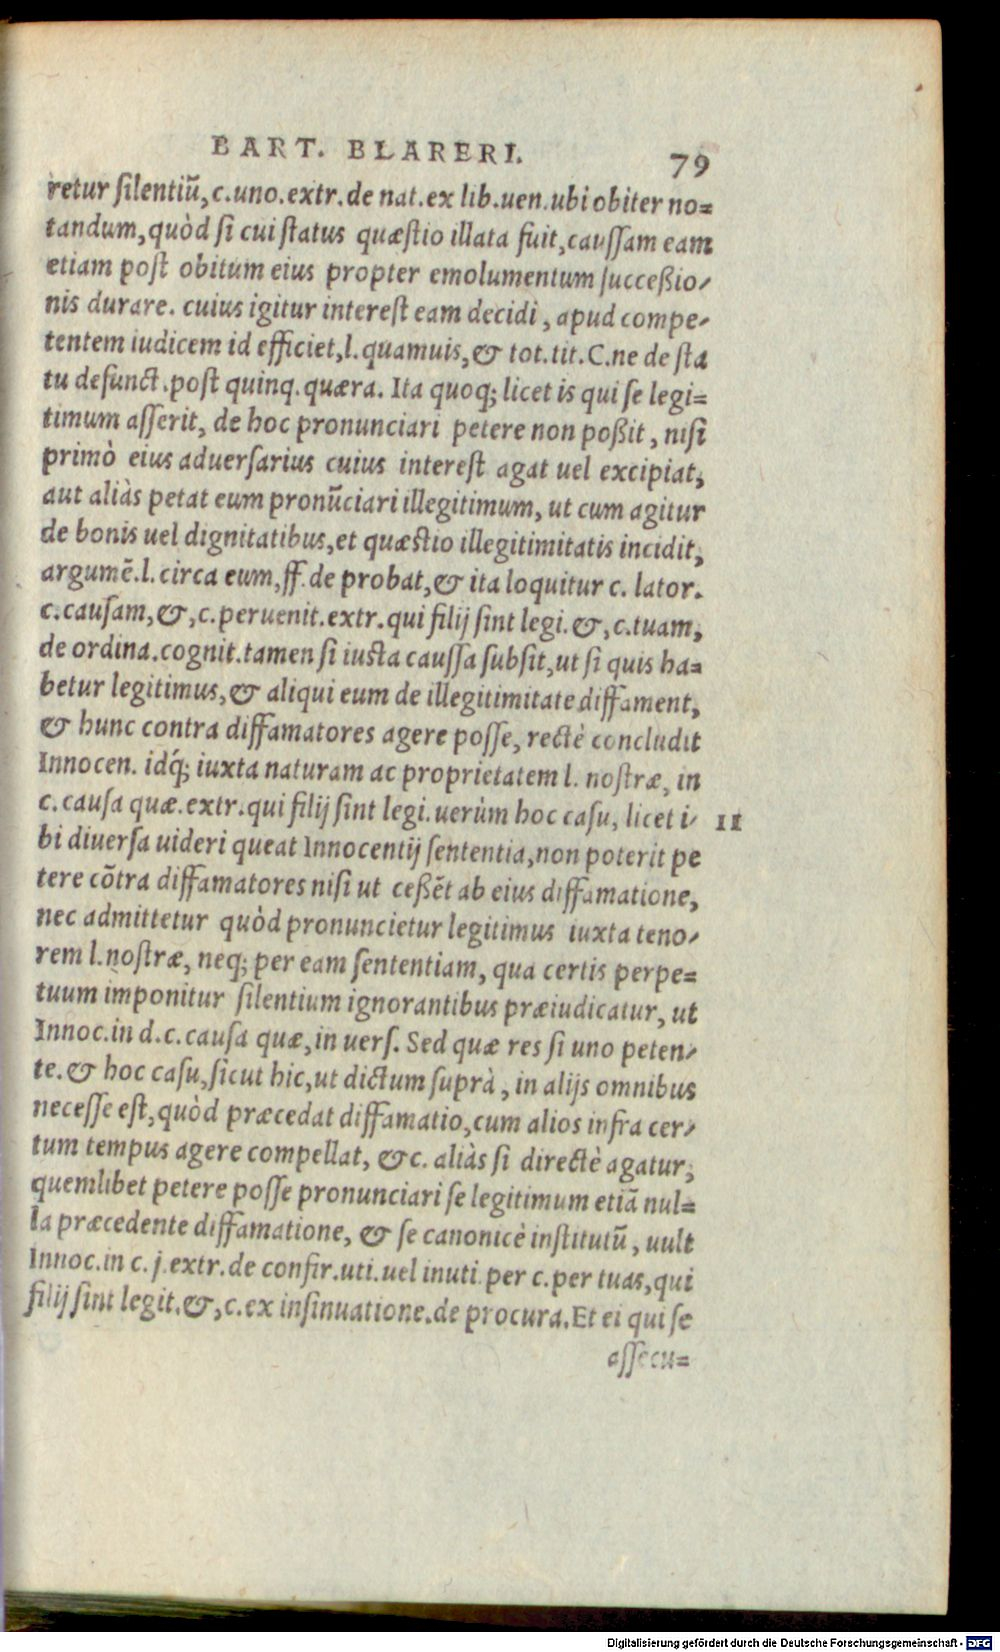 BART. BLARERI. 79
retur silentiū, c. uno. extr. de nat. ex lib. uen. ubi obiter no=
tandum, quòd si cui status quæstio illata fuit, caussam eam
etiam post obitum eius propter emolumentum successio-
nis durare. cuius igitur interest eam decidi, apud compe-
tentem iudicem id efficiet, l. quamuis, & tot. tit. C. ne de sta
tu defunct. post quinq. quæra. Ita quoq; licet is qui se legi=
timum asserit, de hoc pronunciari petere non possit, nisi
primò eius aduersarius cuius interest agat uel excipiat,
aut aliàs petat eum pronūciari illegitimum, ut cum agitur
de bonis uel dignitatibus, et quæstio illegitimitatis incidit,
argumē. l. circa eum, ff. de probat, & ita loquitur c. lator.
c. causam, &, c. peruenit. extr. qui filij sint legi. &, c. tuam,
de ordina. cognit. tamen si iusta caussa subsit, ut si quis ha=
betur legitimus, & aliqui eum de illegitimitate diffament,
& hunc contra diffamatores agere posse, rectè concludit
Innocen. idq́; iuxta naturam ac proprietatem l. nostræ, in
c. causa quæ. extr. qui filij sint legi. uerùm hoc casu, licet i- 11
bi diuersa uideri queat Innocentij sententia, non poterit pe
tere cōtra diffamatores nisi ut cessēt ab eius diffamatione,
nec admittetur quòd pronuncietur legitimus iuxta teno-
rem l. nostræ, neq; per eam sententiam, qua certis perpe=
tuum imponitur silentium ignorantibus præiudicatur, ut
Innoc. in d. c. causa quæ, in uers. Sed quæ res si uno peten-
te. & hoc casu, sicut hic, ut dictum suprà, in alijs omnibus
necesse est, quòd præcedat diffamatio, cum alios infra cer-
tum tempus agere compellat, &c. aliàs si directè agatur,
quemlibet petere posse pronunciari se legitimum etiā nul=
la præcedente diffamatione, & se canonicè institutū, uult
Innoc. in c. j. extr. de confir. uti. uel inuti. per c. per tuas, qui
filij sint legit. &, c. ex insinuatione. de procura. Et ei qui se
assecu=
Digitalisierung gefördert durch die Deutsche Forschungsgemeinschaft - DFG